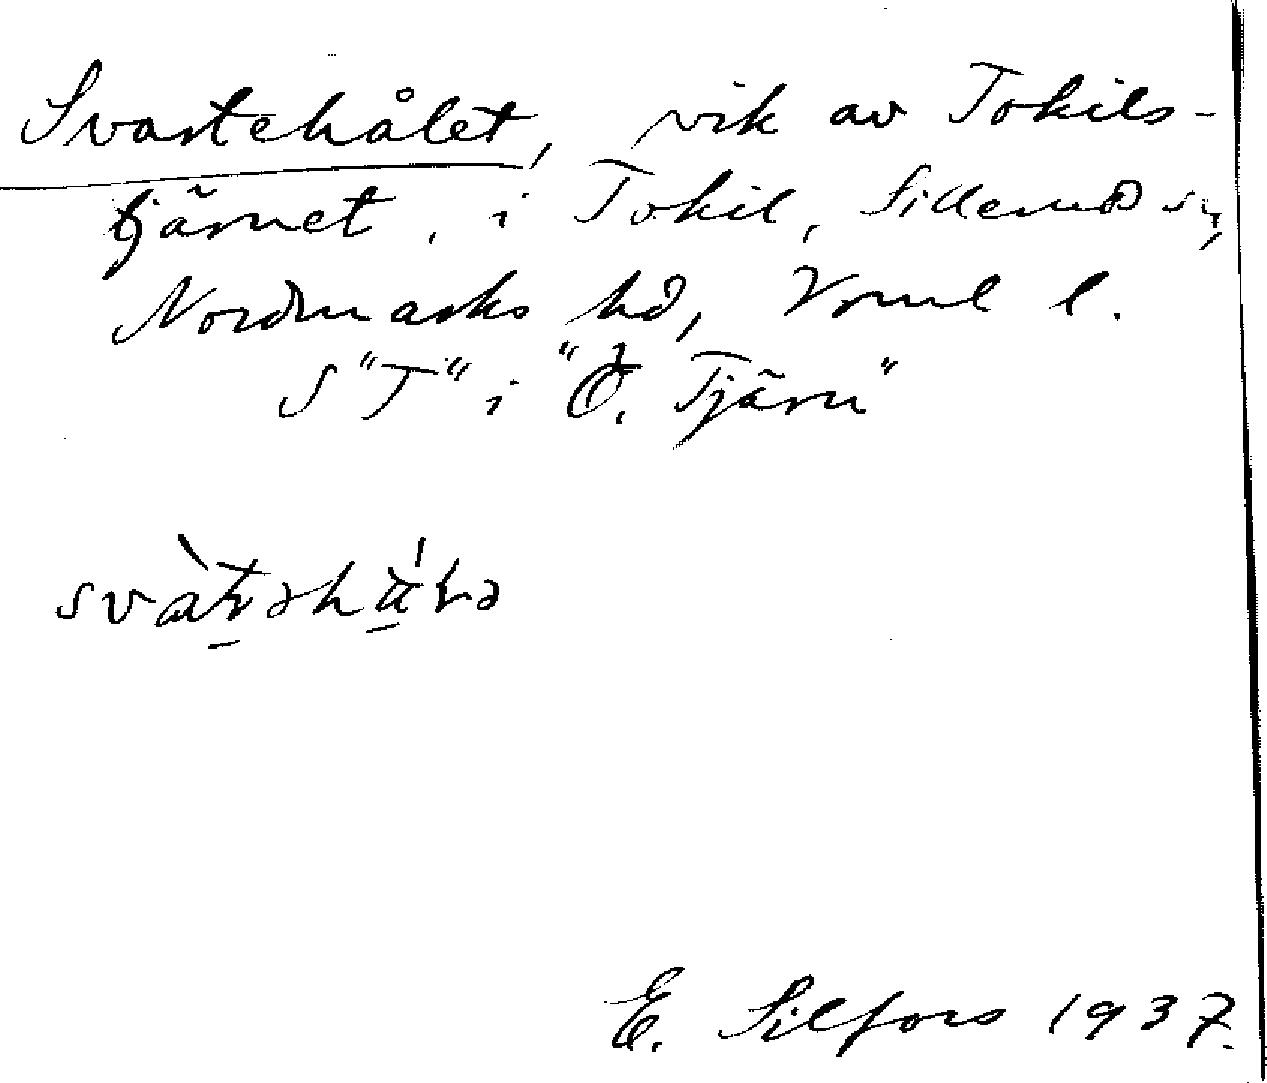 Svartehålet, vik av Tokils-
tjärnet, i Tokil, Sillerud sn,
Nordmarks hd, Vrml l.
S "T" i "Ö. Tjärn"
E. Silfors 1937.